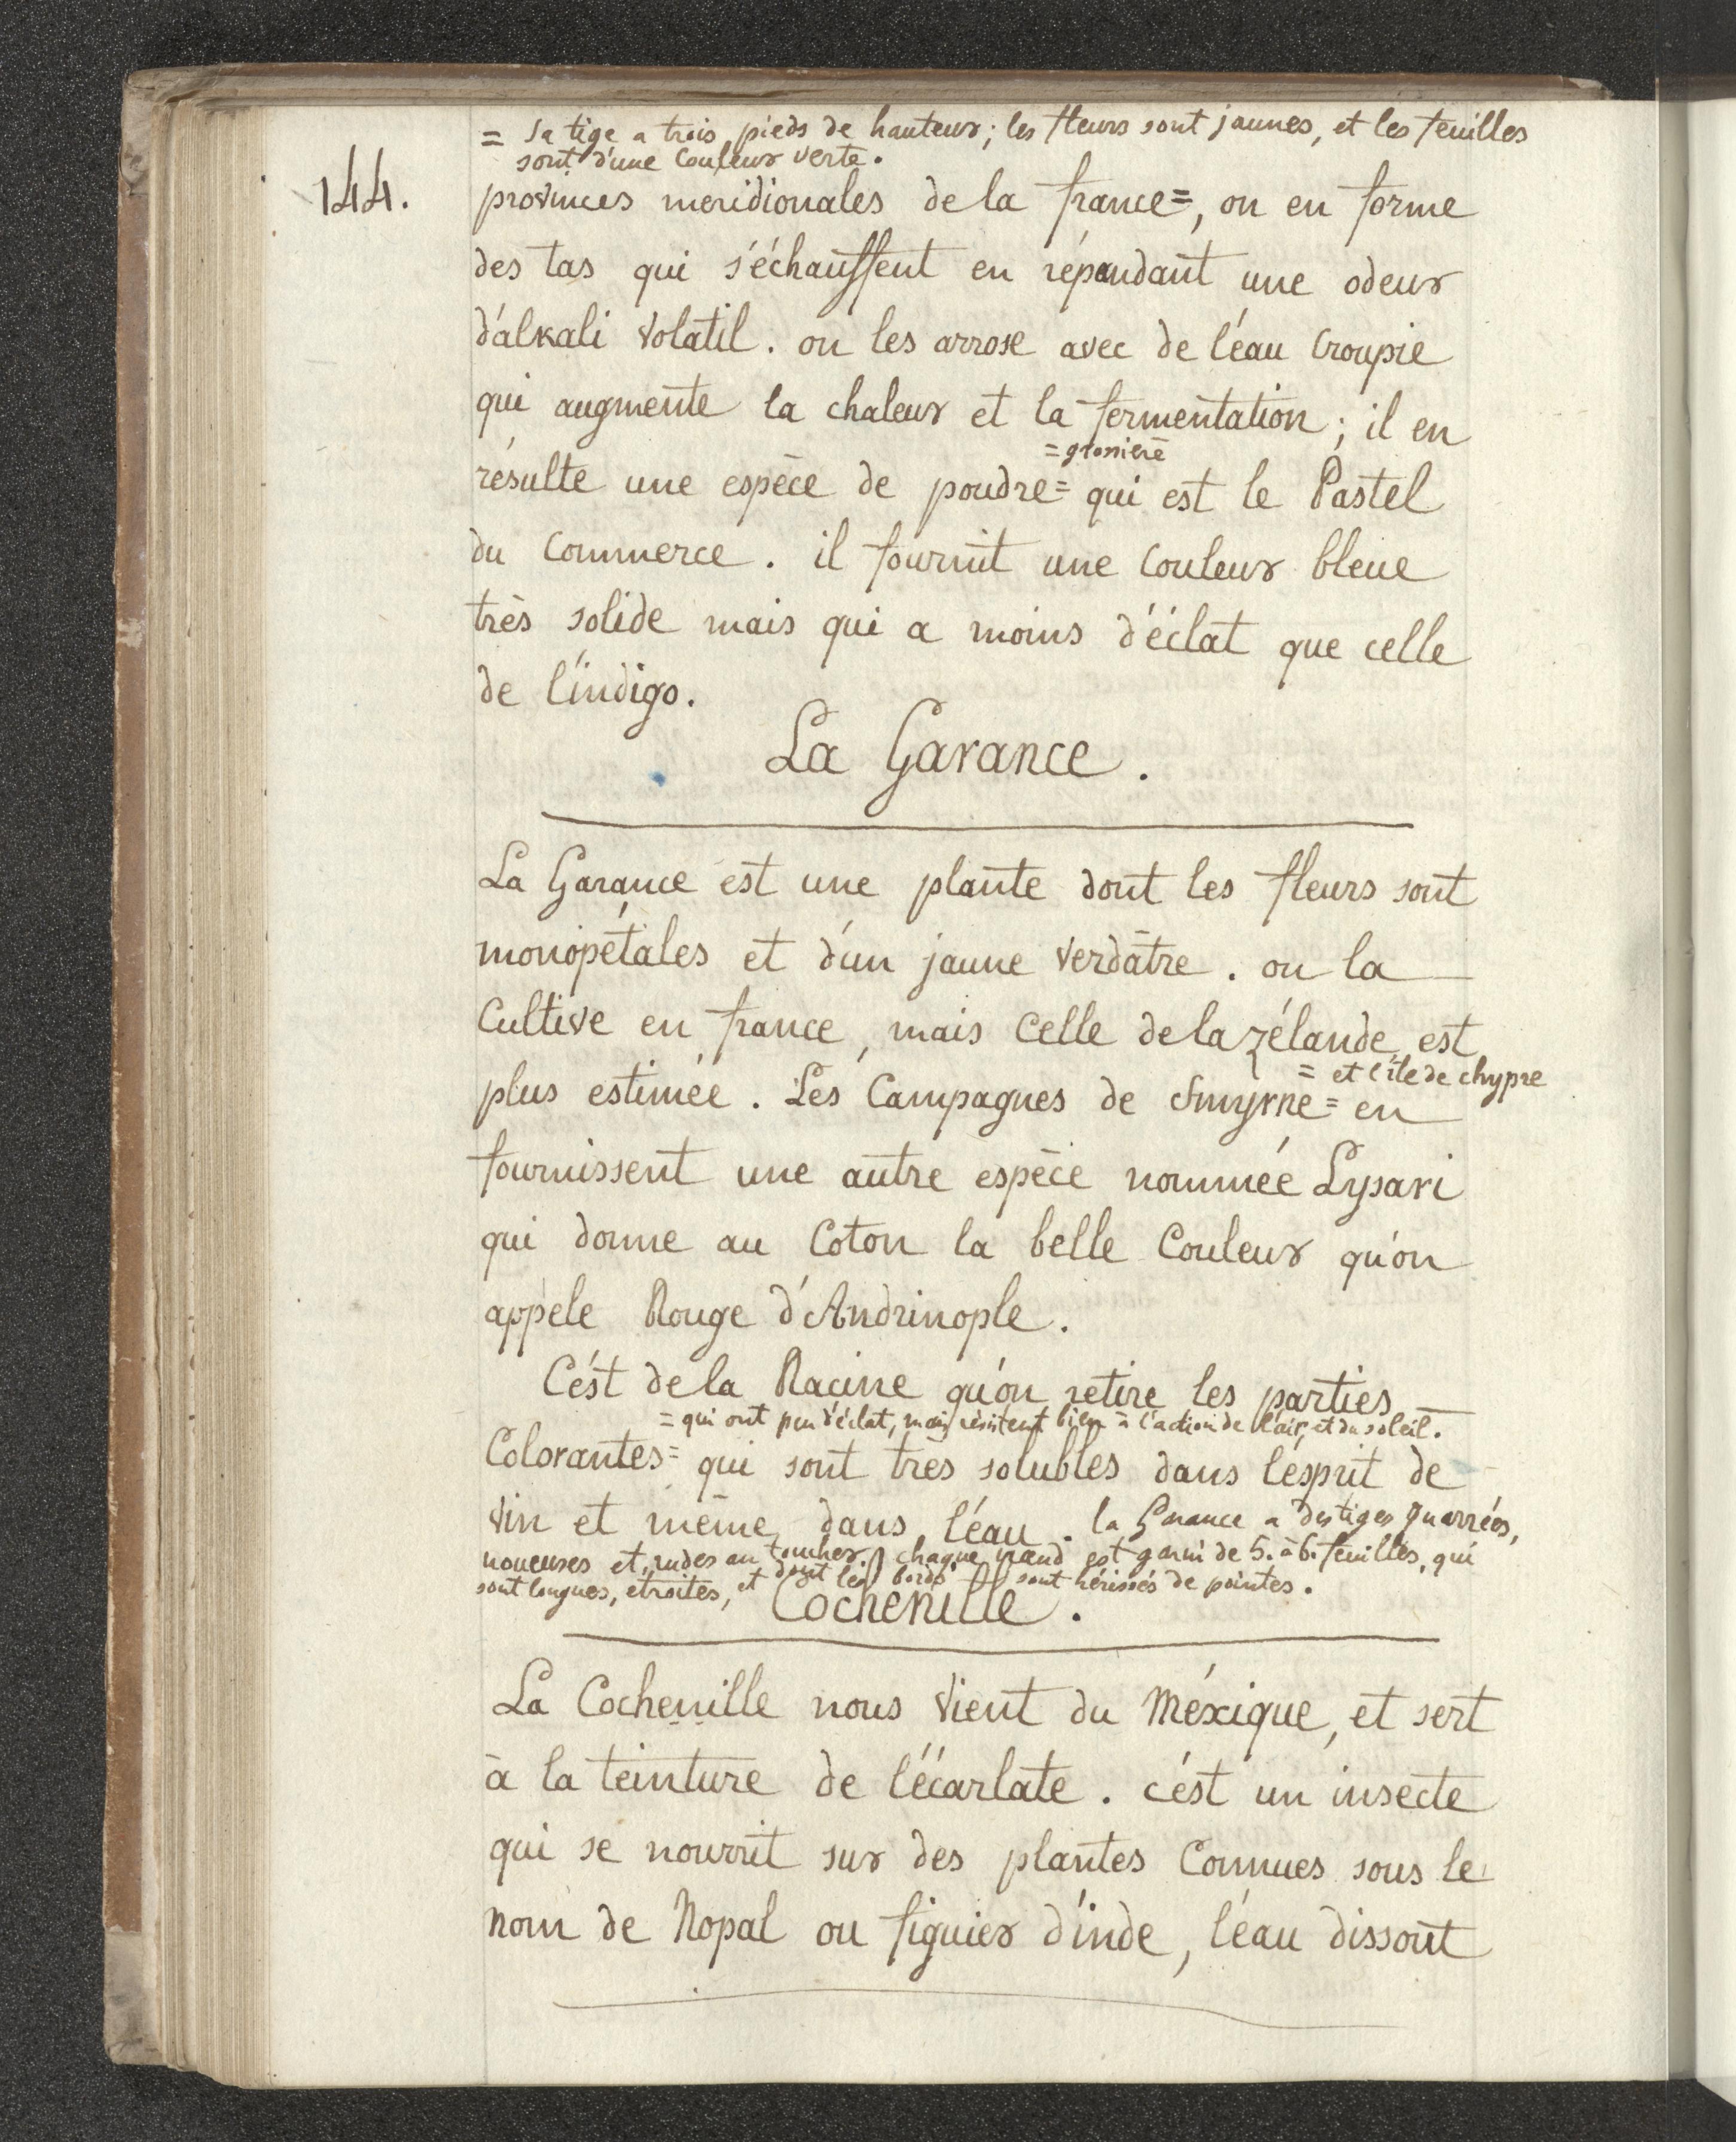 = Sa tige a trois pieds de hauteur; les fleurs sont jaunes, et les feuilles
sont d'une Couleur verte.
144.
provinces meridionales de la france=, on en forme
des tas qui s'échauffent en répandant une odeur
d'alkali volatil. on les arrose avec de l'éau Croupie
qui augmente la chaleur et la fermentation; il en
=grossiere
résulte une espèce de poudre= qui est le Pastel
du Commerce. il fournit une Couleur bleue
très solide mais qui a moins d'éclat que celle
de l'indigo.
La Garance.
La Garance est une plante dont les fleurs sont
monopétales et d'un jaune verdâtre. on la
Cultive en france, mais Celle de la zélande est
= et l'île de chypre
plus estimée. Les Campagnes de Smyrne= en
fournissent une autre espèce nommée Lysari
qui donne au Coton la belle Couleur qu'on
appele Rouge d'Andrinople.
C'ést de la Racine qu'on retire les parties
= qui ont peu d'éclat, mais résistent bien à l'action de l'air, et du soleil.
Colorantes= qui sont très solubles dans l'esprit de
vin et même dans l'éau. la Garance a des tiges quarrées,
noueuses et rudes au toucher. chaque nœud est garni de 5. à 6. feuilles, qui
sont longues, etroites, et dont les bords sont hérissés de pointes.
Cochenille.
La Cochenille nous vient du Méxique, et sert
à la teinture de l'écarlate. c'ést un insecte
qui se nourrit sur des plantes Connues sous le
nom de Nopal ou figuier d'inde, l'éau dissout